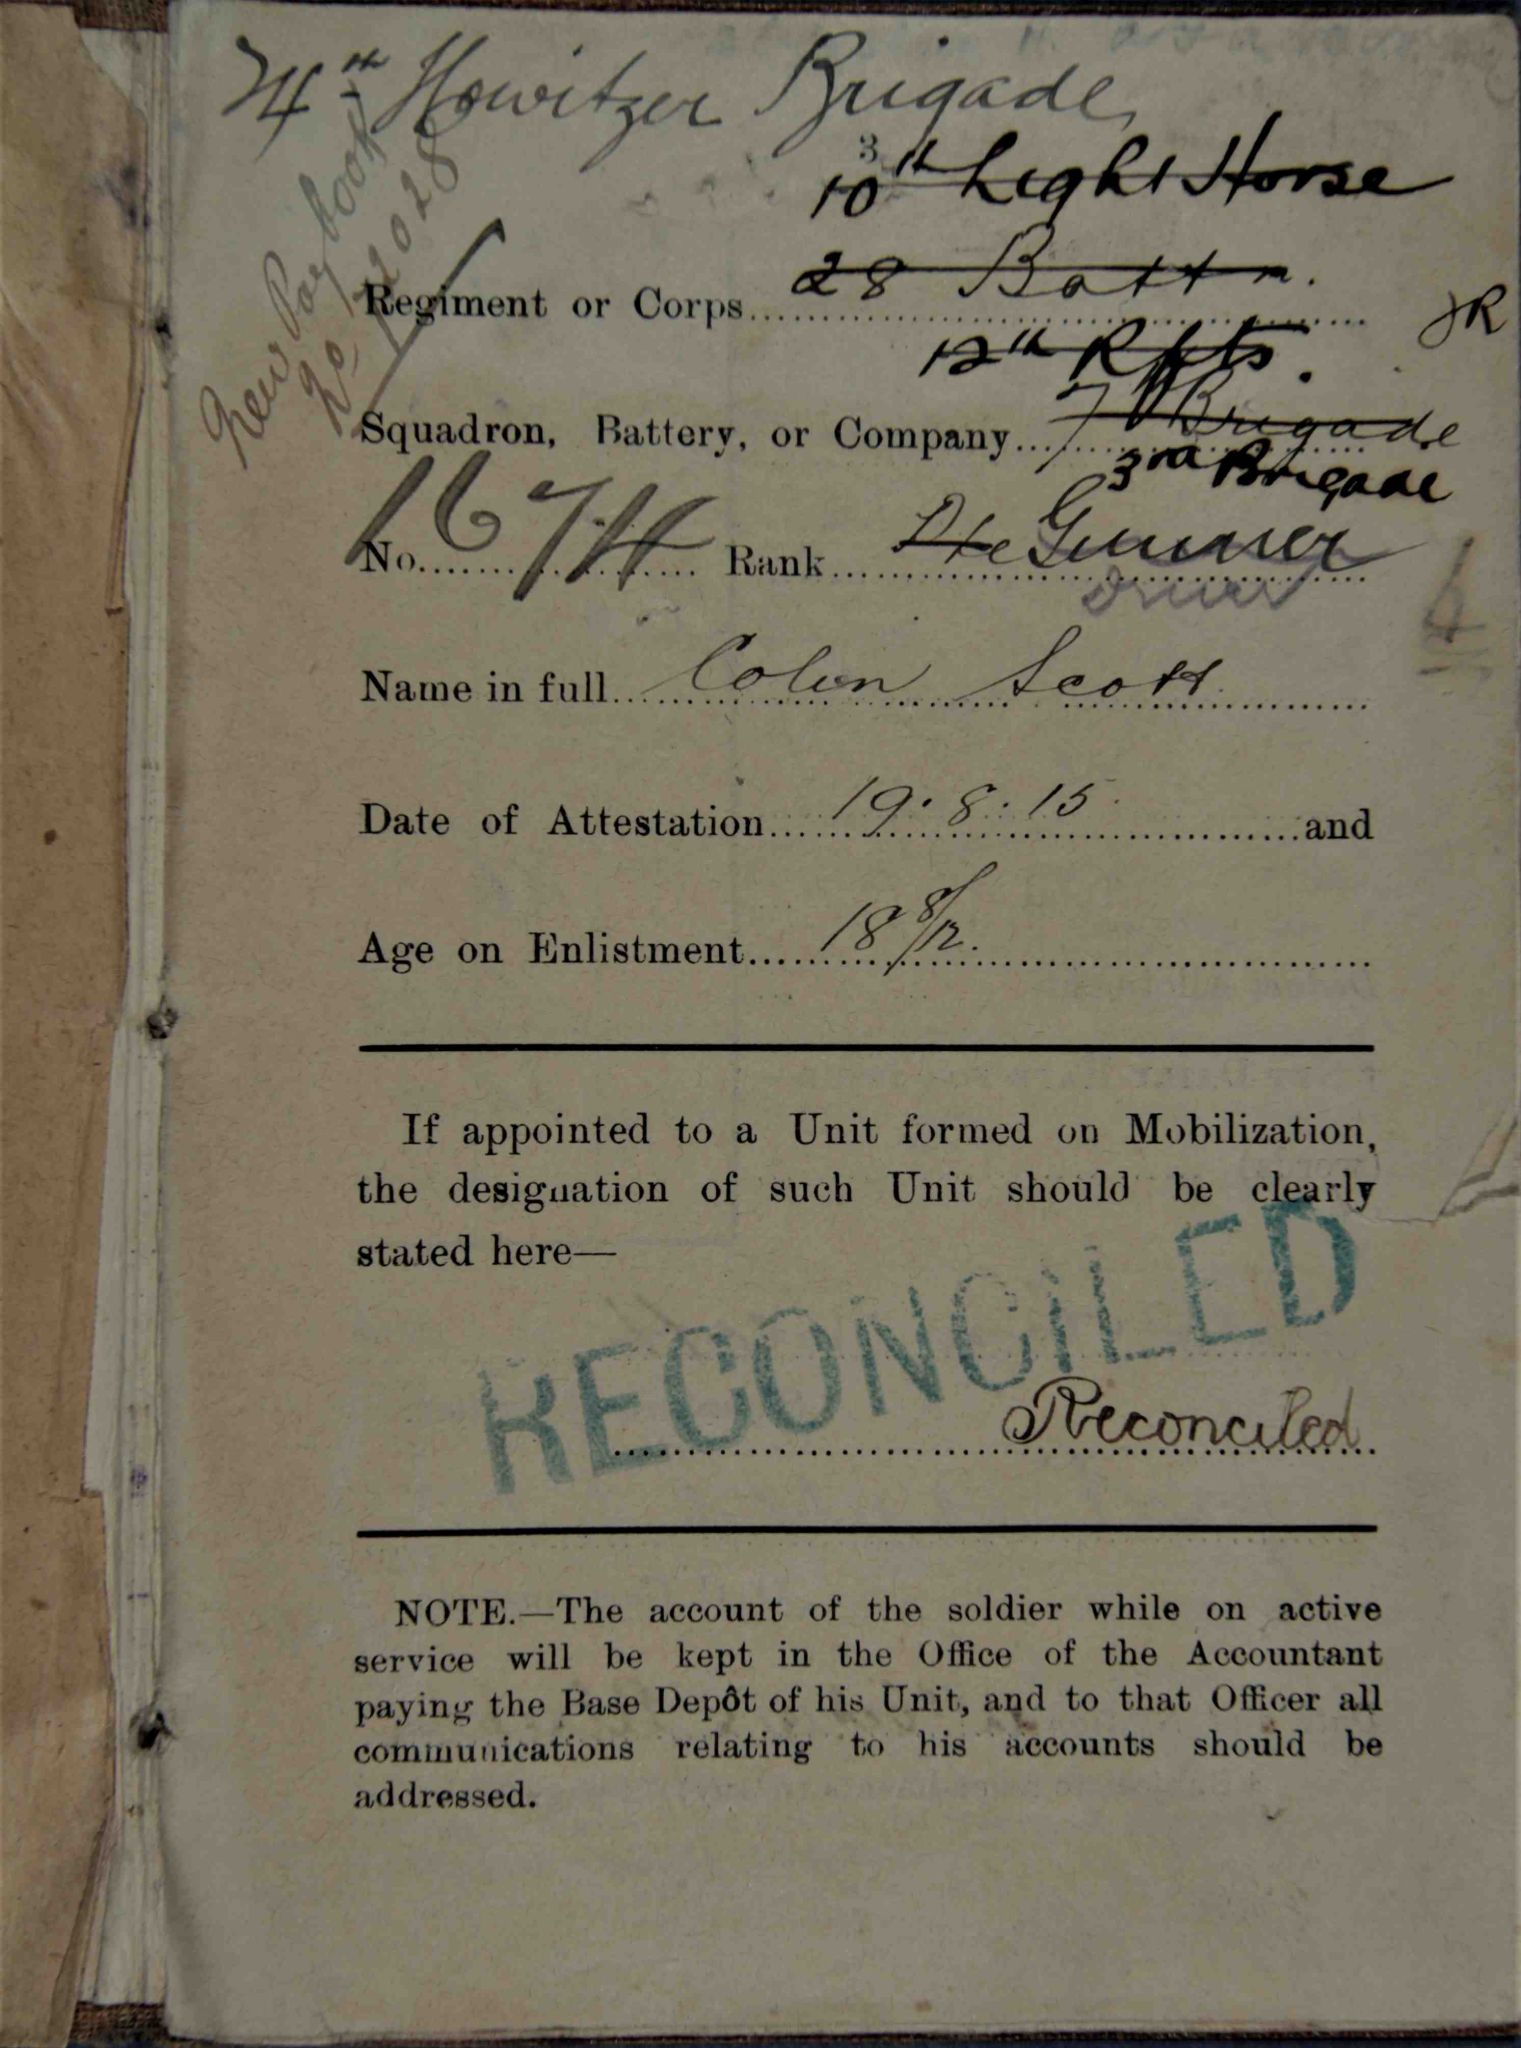 4th Howitzer Brigade
3
10th Light Horse
New Pay book
Regiment or Corps 28 Battn.
JR
12th Rfts.
Squadron, Battery, or Company 7 Brigade
3rd Brigade
No. 1674 Rank Pte Gunner
Driver
Name in full Colin Scott
Date of Attestation 19.8.15 and
Age on Enlistment 18 8/12.
If appointed to a Unit formed on Mobilization,
the designation of such Unit should be clearly
stated here—
RECONCILED
Reconciled
NOTE.—The account of the soldier while on active
service will be kept in the Office of the Accountant
paying the Base Depôt of his Unit, and to that Officer all
communications relating to his accounts should be
addressed.